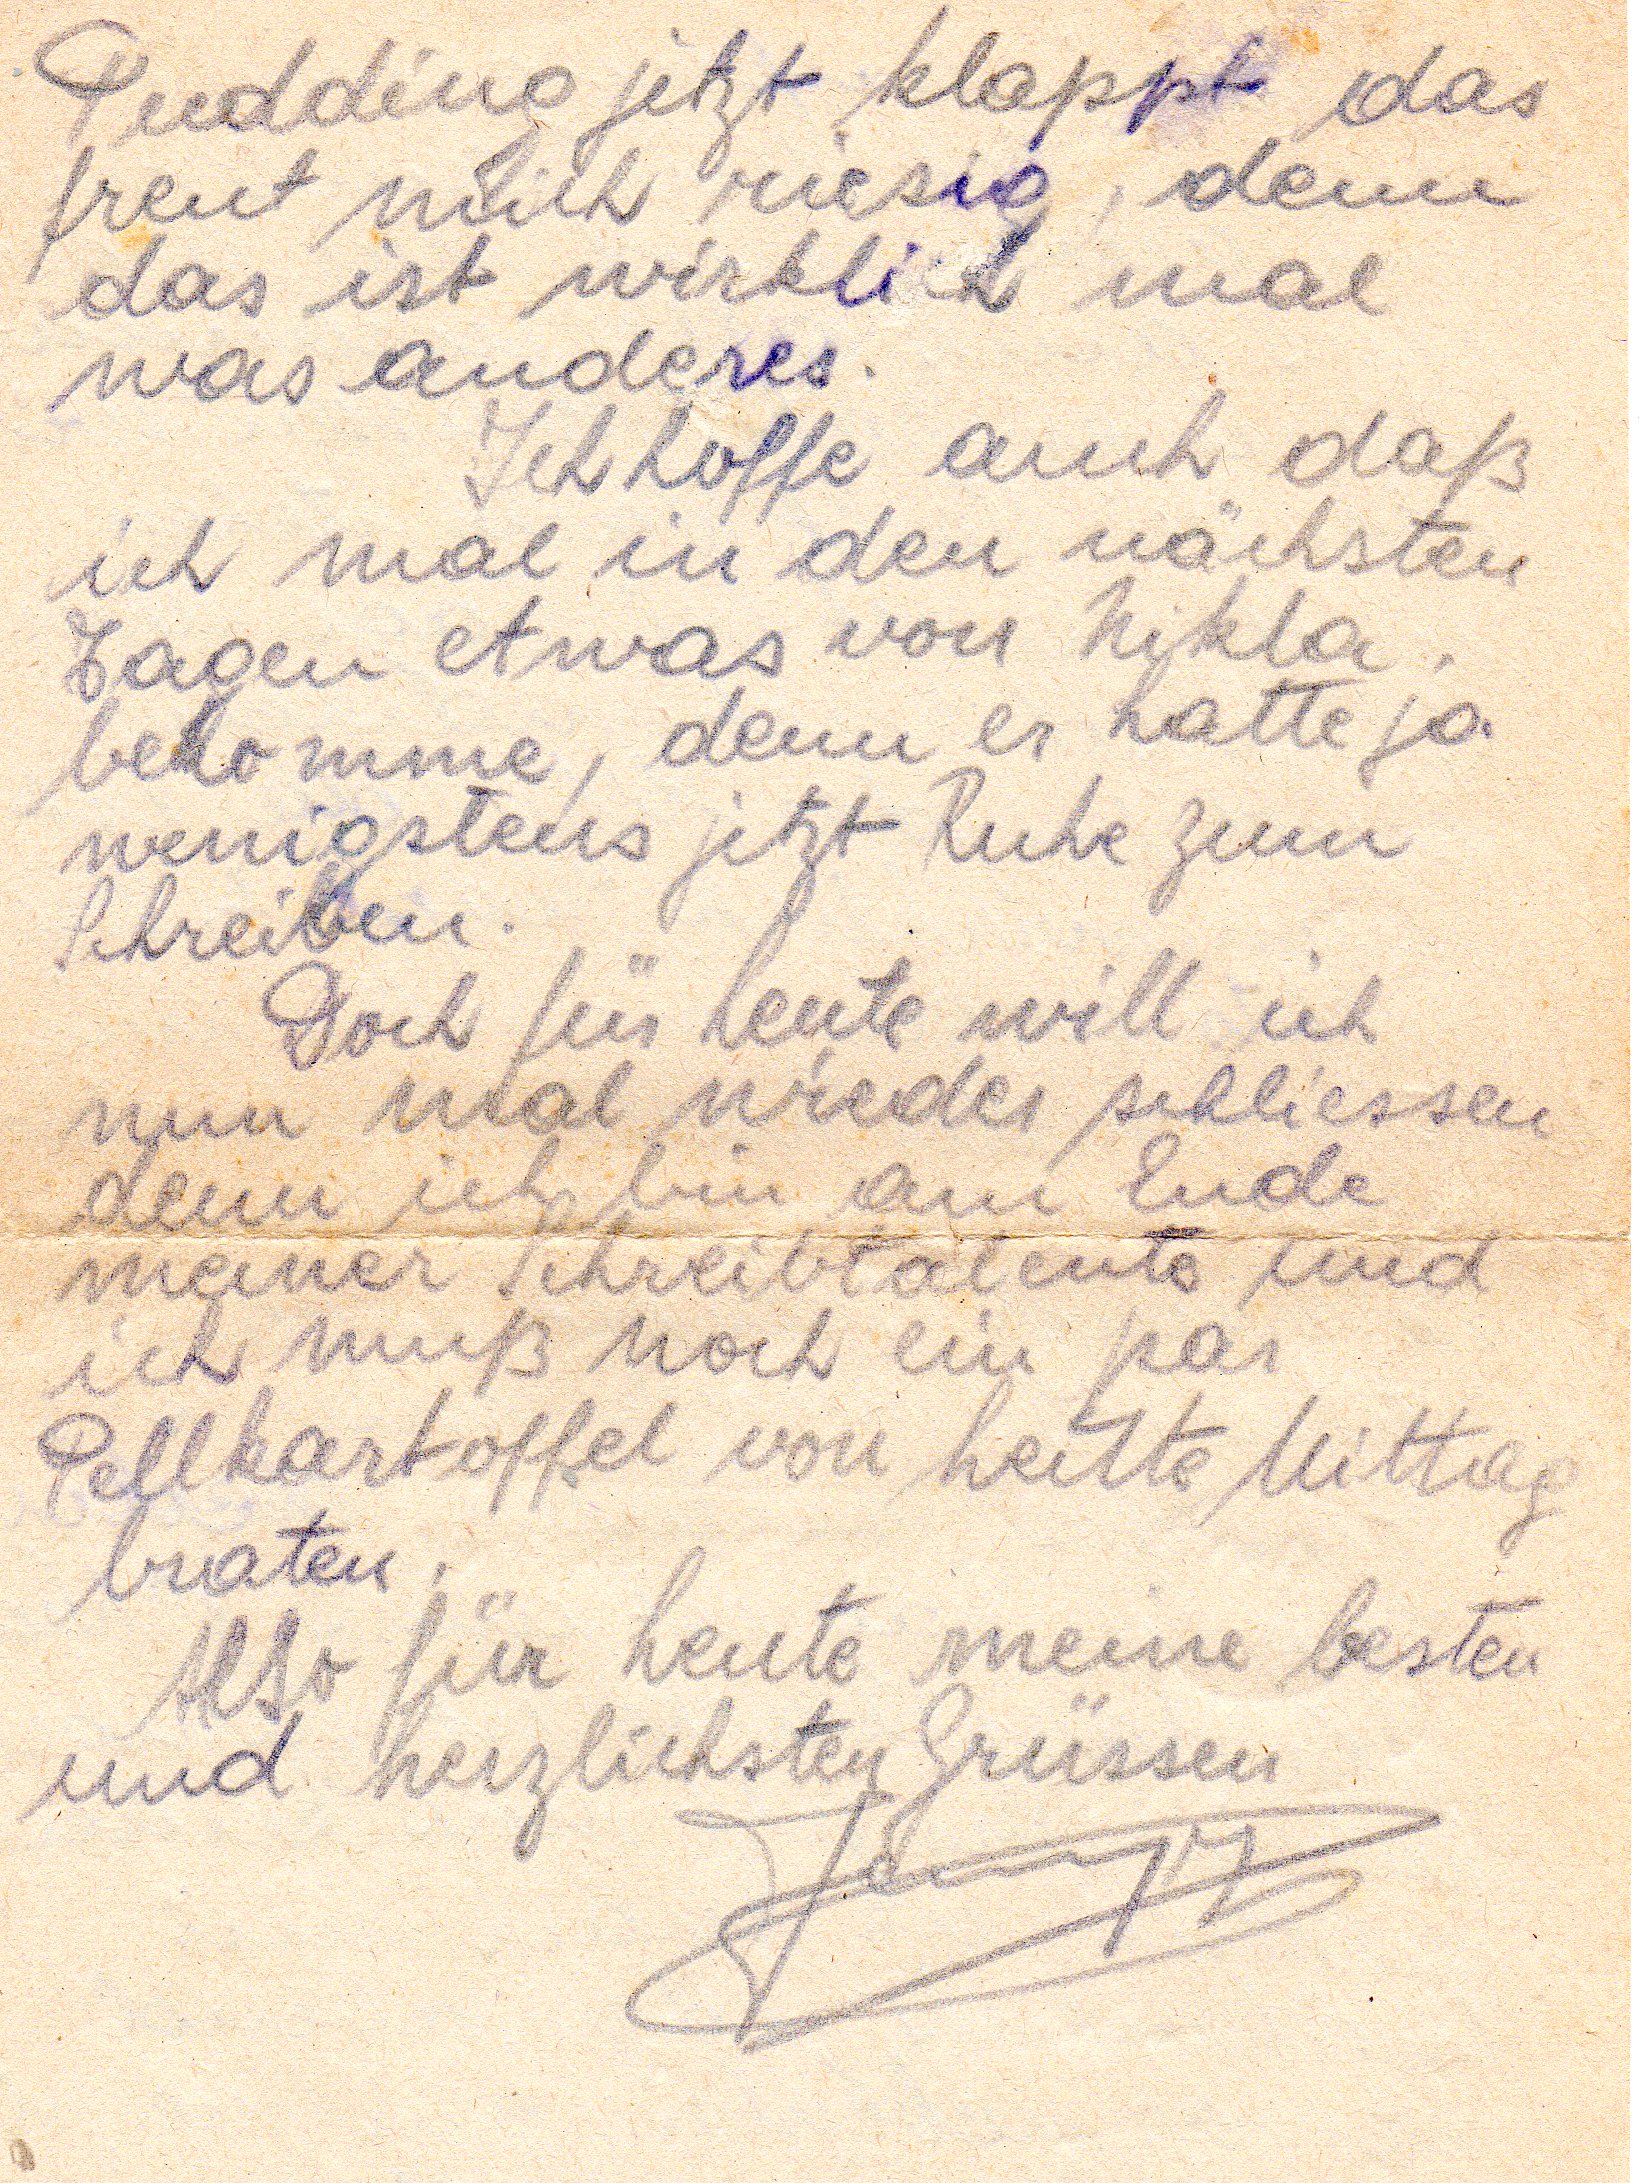 Pudding jetzt klappt das
freut mich riesig, denn
das ist wirklich mal
was anderes.
Ich hoffe auch daß
ich mal in den nächsten
Tagen etwas von Nikla.
bekomme, denn er hatte ja
wenigstens jetzt Ruhe zum
Schreiben.
Doch für heute will ich
nun mal wieder schliessen
denn ich bin am Ende
meiner Schreibtalente und
ich muß noch ein par
Pellkartoffel von heute Mittag
braten.
Also für heute meine besten
und herzlichsten Grüssen